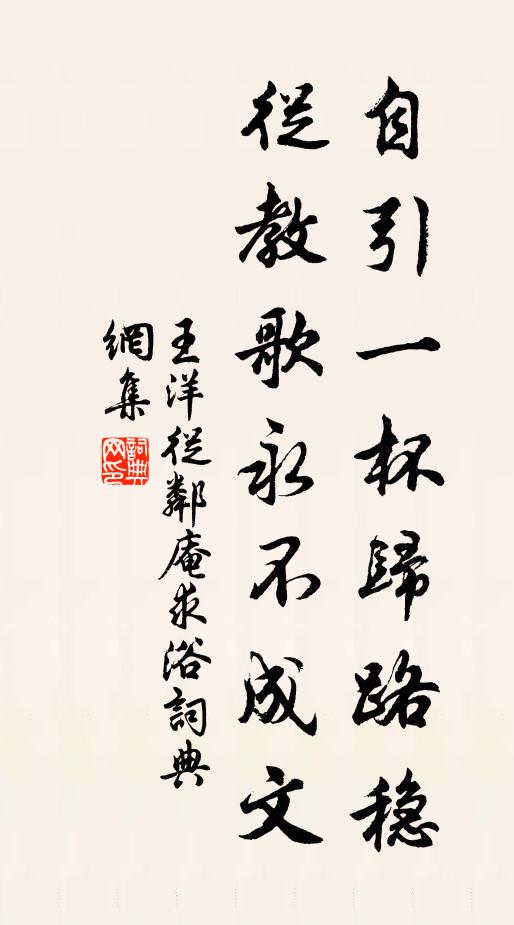 自引一杯歸路穩
從教歌永不成文
王洋從鄰庵求浴詞典
網集
詞典网印